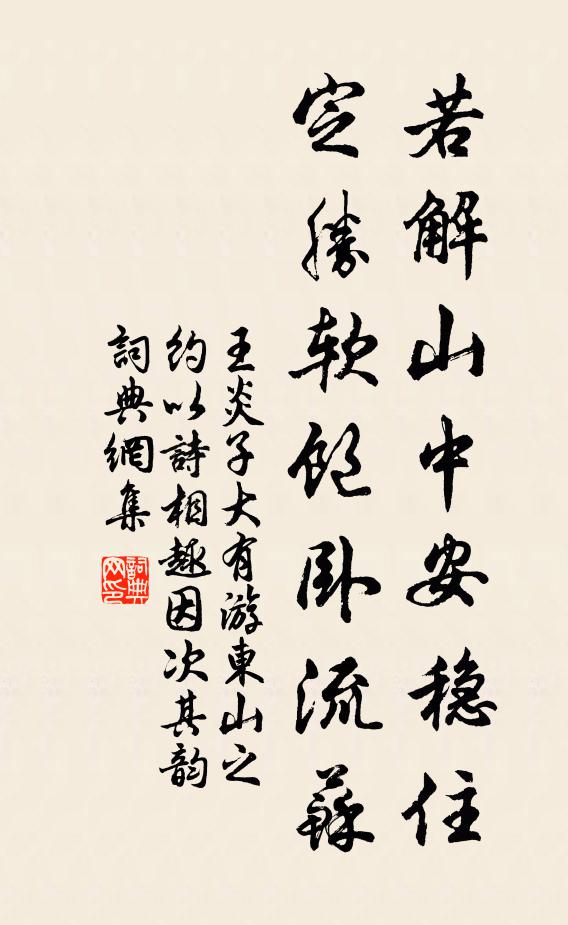 若解山中安稳住
定勝軟飽卧流蘇
王炎子大有游東山之
約以詩相趣因次其韵
詞典網集
詞典網印